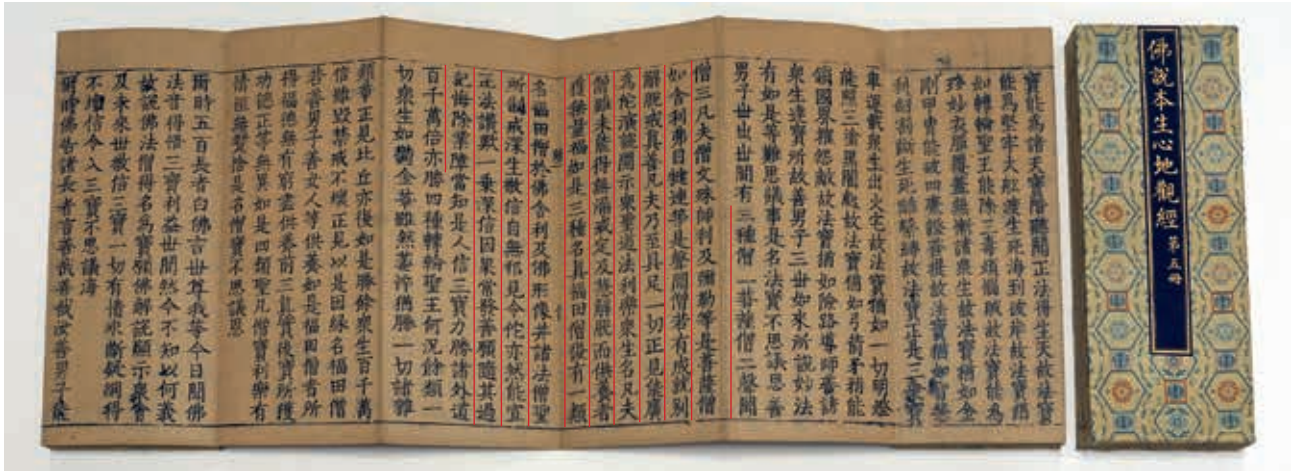 寶能為諸天寶階聽聞正法得生天故法寶
能為堅牢大船渡生死海到彼岸故法寶猶
如轉輪聖王能除三毒煩惱賊故法寶能為
珍妙衣服覆蓋無慚諸衆生故法寶猶如金
剛甲胄能破四魔證菩提故法寶猶如智慧
利劍割斷生死離繫縛故法寶正是三乘寶
車運載衆生出火宅故法寶猶如一切明燈
能照三塗黑闇處故法寶猶如弓箭矛矟能
鎮國界摧怨敵故法寶猶如險路導師善誘
衆生達寶所故善男子三世如來所說妙法
有如是等難思議事是名法寶不思議恩善
男子世出世間有三種僧一菩薩僧二聲聞
僧三凡夫僧文殊師利及彌勒等是菩薩僧
如舍利弗目犍連等是聲聞僧若有成就別
解脫戒真善凡夫乃至具足一切正見能廣
為佗演說開示衆聖道法利樂衆生名凡夫
僧雖未能得無漏戒定及慧解脫而供養者
獲無量福如是三種名真福田僧復有一類
名福田僧於佛舍利及佛形像并諸法僧聖
所制戒深生敬信自無邪見令佗亦然能宣
正法讚歎一乘深信因果常發善願隨其過
犯悔除業障當知是人信三寶力勝諸外道
百千萬倍亦勝四種轉輪聖王何況餘類一
切衆生如鬱金華雖然萎悴猶勝一切諸雜
類華正見比丘亦復如是勝餘衆生百千萬
倍雖毀禁戒不壞正見以是因緣名福田僧
若善男子善女人等供養如是福田僧者所
得福德無有窮盡供養前三真實僧寶所獲
功德正等無異如是四類聖凡僧寶利樂有
情恒無暫捨是名僧寶不思議恩
爾時五百長者白佛言世尊我等今日聞佛
法音得悟三寶利益世間然今不知以何義
故說佛法僧得名為寶願佛解說顯示衆會
及未來世敬信三寶一切有情永斷疑網得
不壞信令入三寶不思議海
爾時佛告諸長者言善哉善哉汝善男子能
佛說本生心地觀經 第五冊